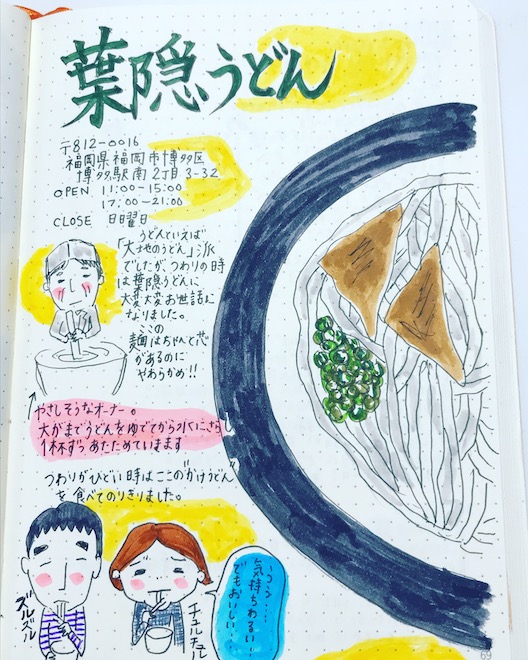 葉隠うどん
〒812-0016
福岡県福岡市博多区
博多駅南2丁目3-32
OPEN 11:00-15:00
17:00-21:00
CLOSE 日曜日
うどんといえば
「大地のうどん」派
でしたが、つわりの時
は葉隠うどんに
大変大変お世話に
なりました。
ここの
麺はちゃんと芯
があるのに
やわらかめ!!
やさしそうなオーナー。
大がまでうどんをゆでてから水にさらし
1杯ずつあたためていきます
つわりがひどい時はここの"かけうどん"
を食べてのりきりました。
ズルズル
チュルチュル
うぅぅ…
気持ちわるい…
でもおいしい…
69